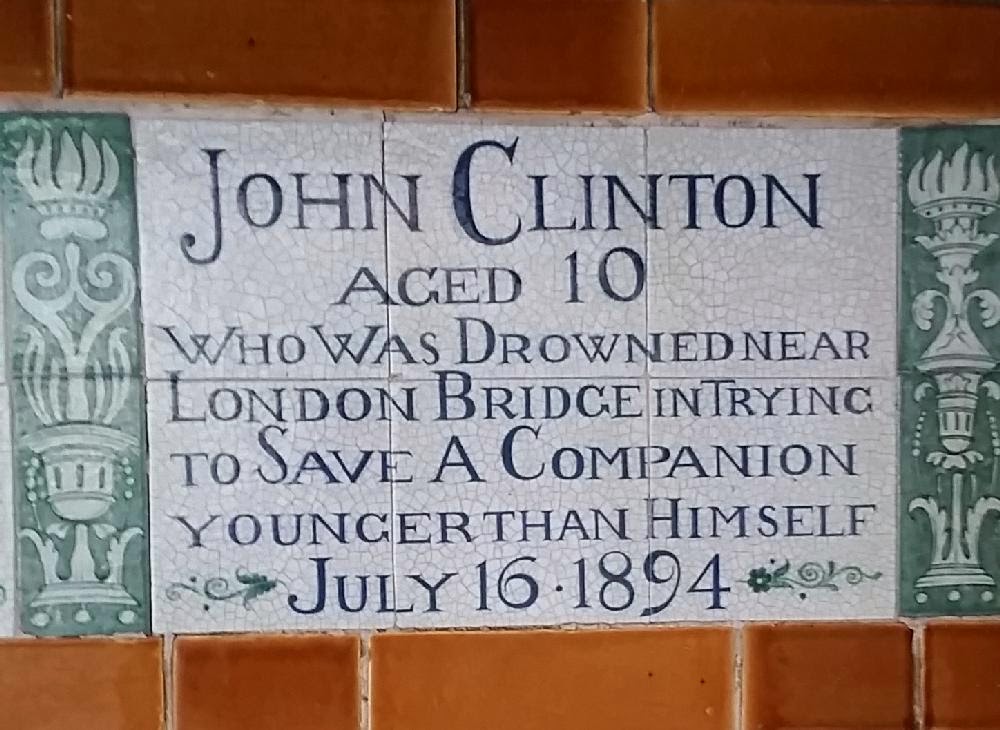 JOHN CLINTON
AGED 10
WHO WAS DROWNED NEAR
LONDON BRIDGE IN TRYING
TO SAVE A COMPANION
YOUNGER THAN HIMSELF
JULY 16 · 1894